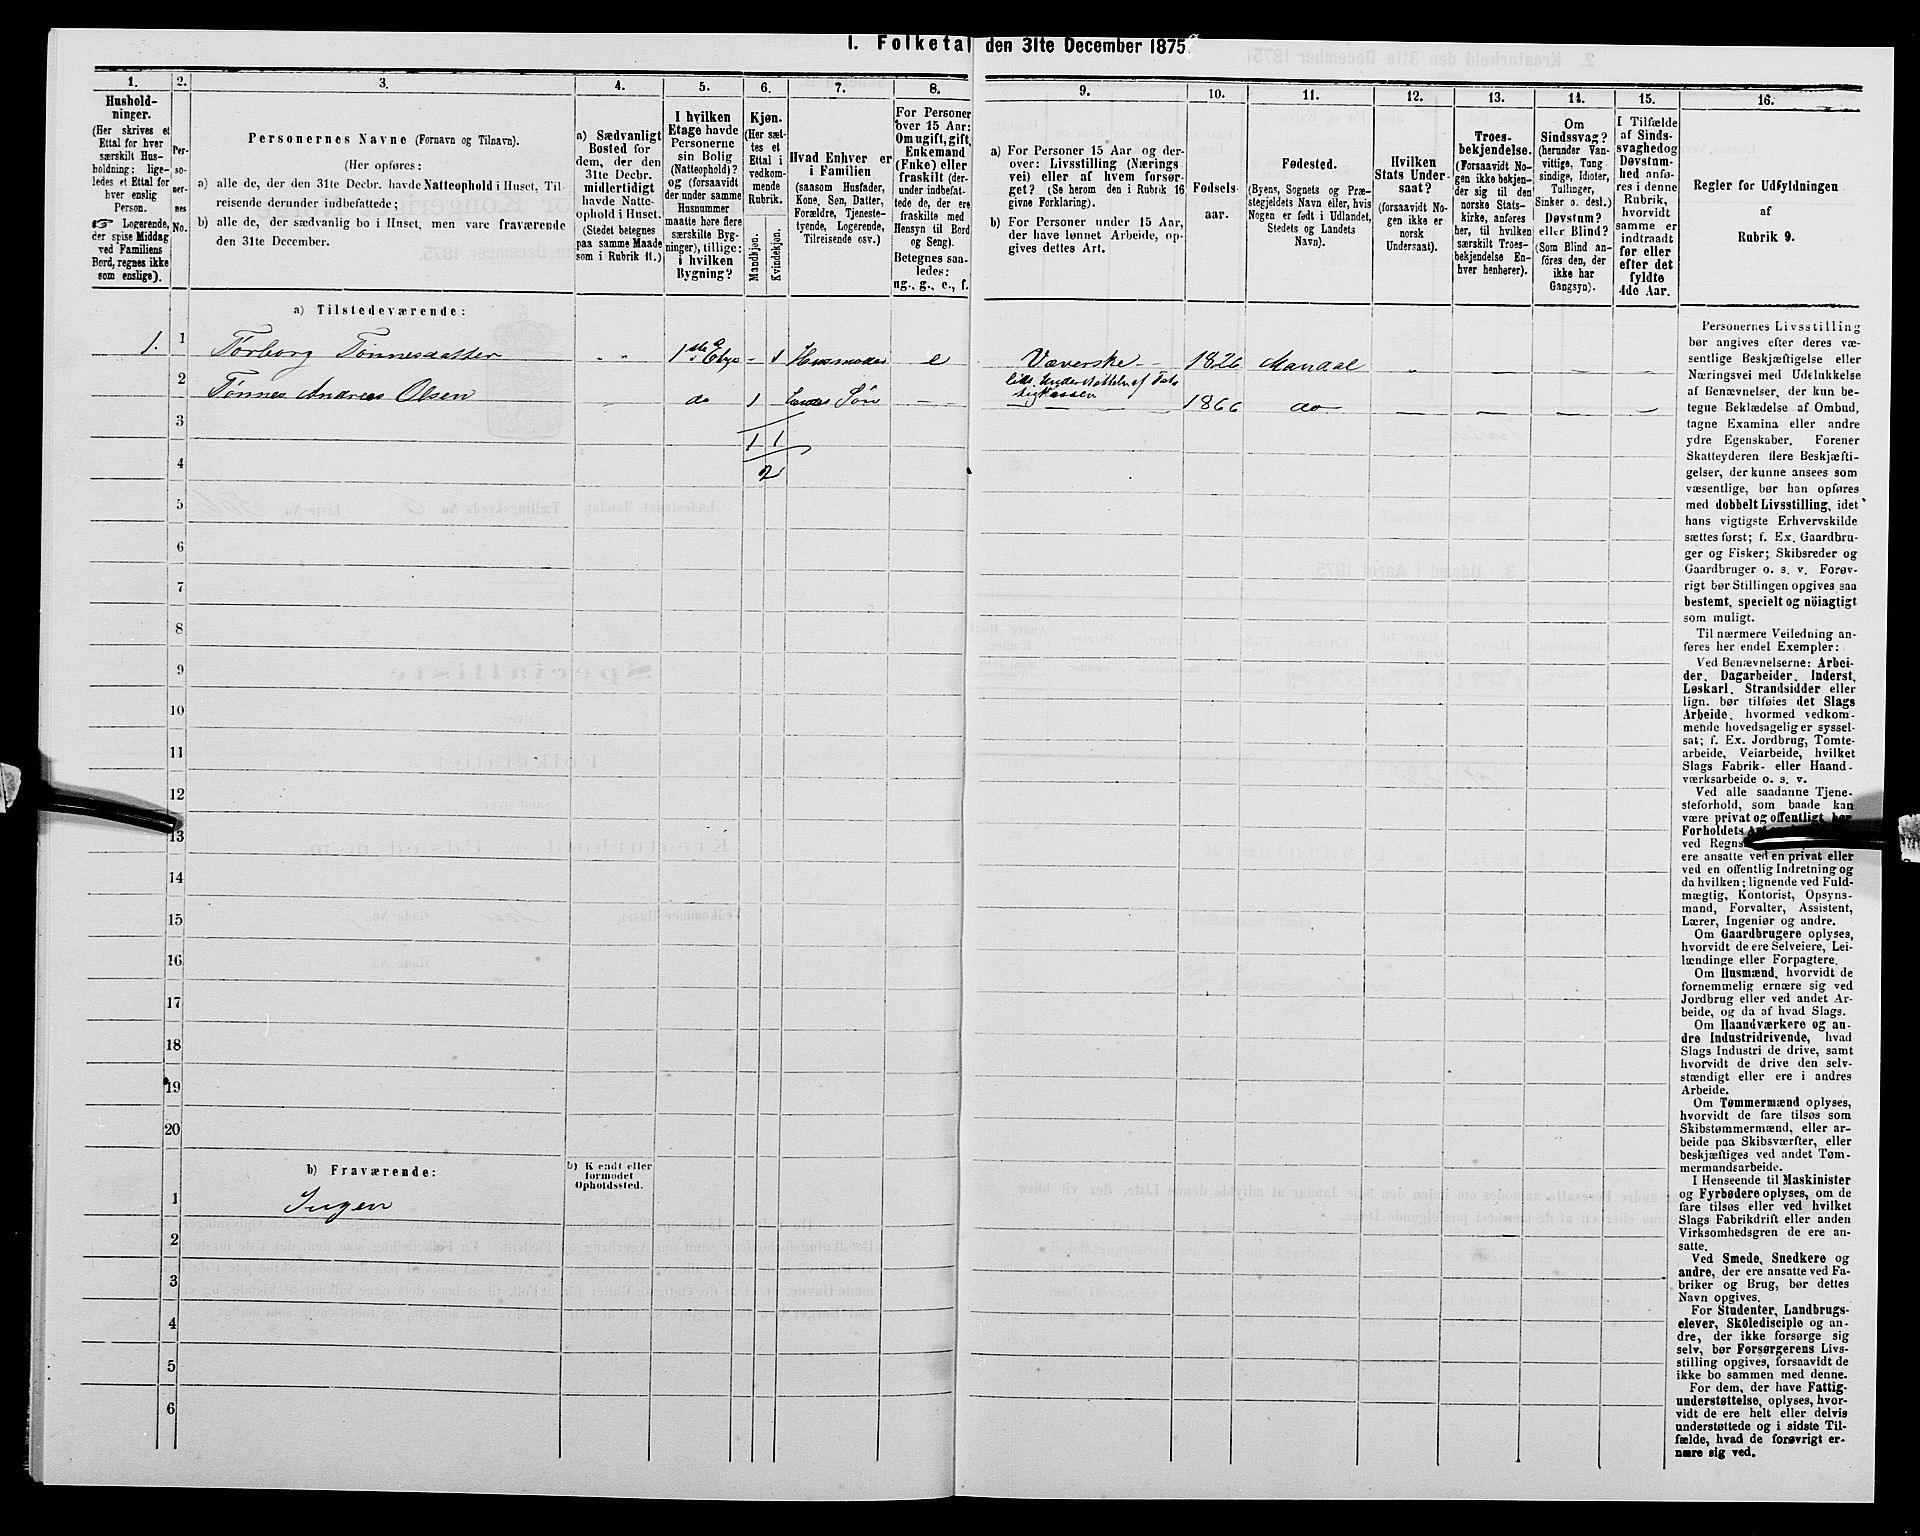 1. Folketal den 31te December 1875.
1.
Hushold-
ninger.
(Her skrives et
Ettal for hver
særskilt Hus-
holdning; lige-
ledes et Ettal for
hver enslig
Person.
☞ Logerende,
der spise Middag
ved Familiens
Bord, regnes ikke
som enslige).
2.
Per-
so-
ner-
nes
No.
3.
Personernes Navne (Fornavn og Tilnavn).
(Her opføres:
a) alle de, der den 31te Decbr. havde Natteophold i Huset, Til-
reisende derunder indbefattede;
b) alle de, der sædvanlig bo i Huset, men vare fraværende
den 31te December.
4.
a) Sædvanligt
Bosted for
dem, der den
31te Decbr.
midlertidigt
havde Natte-
ophold i Huset.
(Stedet betegnes
paa samme Maade
som i Rubrik 11.)
5.
I hvilken
Etage havde
Personerne
sin Bolig
(Natteophold)?
og (forsaavidt
der under samme
Husnummer
maatte høre flere
særskilte Byg-
ninger), tillige:
i hvilken
Bygning?
6.
Kjøn.
(Her sæt-
tes et
Ettal i
vedkom-
mende
Rubrik.
Mandkjøn.
Kvindekjøn.
7.
Hvad Enhver er
i Familien
(saasom Husfader,
Kone, Søn, Datter,
Forældre, Tjeneste-
tyende, Logerende,
Tilreisende osv.)
8.
For Personer
over 15 Aar:
Om ugift, gift,
Enkemand
(Enke) eller
fraskilt (der-
under indbefat-
tede de, der ere
fraskilte med
Hensyn til Bord
og Seng).
Betegnes saa-
ledes:
ug., g., e., f.
9.
a) For Personer 15 Aar og der-
over: Livsstilling (Nærings
vei) eller af hvem forsør-
get? (Se herom den i Rubrik 16
givne Forklaring).
b) For Personer under 15 Aar,
der have lønnet Arbeide, op-
gives dettes Art.
10.
Fødsels-
aar.
11.
Fødested.
(Byens, Sognets og Præ-
stegjeldets Navn eller, hvis
Nogen er født i Udlandet,
Stedets og Landets
Navn).
12.
Hvilken
Stats Under-
saat?
(forsaavidt No-
gen ikke er
norsk
Undersaat).
13.
Troes-
bekjendelse.
(Forsaavidt No-
gen ikke bekjen-
der sig til den
norske Stats-
kirke, anføres
her, til hvilken
særskilt Troes-
bekjendelse En-
hver henhører).
14.
Om
Sindssvag?
(herunder Van-
vittige, Tung
sindige, Idioter,
Tullinger,
Sinker o. desl.)
Døvstum?
eller Blind?
(Som Blind an-
føres den, der
ikke har
Gangsyn).
15.
I Tilfælde
af Sinds-
svaghed og
Døvstum-
hed anfø-
res i denne
Rubrik,
hvorvidt
samme er
indtraadt
før eller
efter det
fyldte
4de Aar.
16.
Regler for Udfyldningen
af
Rubrik 9.
a) Tilstedeværende:
1. 1 Torborg Tønnesdatter 1ste Etge 1 Husmoder e Væverske 1826 Mandal
2 Tønnes Andreas Olsen do 1 Søn 1866 do
lidt Understøttelse af Fat-
tigkassen
3 1 1
4 2
5
6
7
8
9
10
11
12
13
14
15
16
17
18
19
20
b) Fraværende:
b) Kjendt eller
formodet
Opholdssted.
1 Ingen
2
3
4
5
6
Personernes Livsstilling
bør angives efter deres væ-
sentlige Beskjæftigelse eller
Næringsvei med Udelukkelse
af Benævnelser, der kun be-
tegne Beklædelse af Ombud,
tagne Examina eller andre
ydre Egenskaber. Forener
Skatteyderen flere Beskjæfti-
gelser, der kunne ansees som
væsentlige, bør han opføres
med dobbelt Livsstilling, idet
hans vigtigste Erhvervskilde
sættes først; f. Ex. Gaardbru-
ger og Fisker; Skibsreder og
Gaardbruger o. s. v. Forøv-
rigt bør Stillingen opgives saa
bestemt, specielt og nöiagtigt
som muligt.
Til nærmere Veiledning an-
føres her endel Exempler:
Ved Benævnelserne: Arbei-
der, Dagarbeider, Inderst,
Løskarl, Strandsidder eller
lign. bør tilføies det Slags
Arbeide, hvormed vedkom-
mende hovedsagelig er syssel-
sat; f. Ex. Jordbrug, Tomte-
arbeide, Veiarbeide, hvilket
Slags Fabrik- eller Haand-
værksarbeide o. s. v.
Ved alle saadanne Tjene-
steforhold, som baade kan
være privat og offentligt, bør
Forholdets
ved Regns
ere ansatte ved en privat eller
ved en offentlig Indretning og
da hvilken; lignende ved Fuld-
mægtig, Kontorist, Opsyns-
mand, Forvalter, Assistent,
Lærer, Ingeniør og andre.
Om Gaardbrugere oplyses,
hvorvidt de ere Selveiere, Lei-
lændinge eller Forpagtere.
Om Husmænd, hvorvidt de
fornemmelig ernære sig ved
Jordbrug eller ved andet Ar-
beide, og da af hvad Slags.
Om Haandværkere og an-
dre Industridrivende, hvad
Slags Industri de drive, samt
hvorvidt de drive den selv-
stændigt eller ere i andres
Arbeide.
Om Tømmermænd oplyses,
hvorvidt de fare tilsøs som
Skibstømmermænd, eller ar-
beide paa Skibsværfter, eller
beskjæftiges ved andet Tøm-
mermandsarbeide.
I Henseende til Maskinister
og Fyrbødere oplyses, om de
fare tilsøs eller ved hvilket
Slags Fabrikdrift eller anden
Virksomhedsgren de ere an-
satte.
Ved Smede, Snedkere og
andre, der ere ansatte ved Fa-
briker og Brug, bør dettes
Navn opgives.
For Studenter, Landbrugs-
elever, Skoledisciple og an-
dre, der ikke forsørge sig
selv, bør Forsørgerens Livs-
stilling opgives, forsaavidt de
ikke bo sammen med denne.
For dem, der have Fattig-
understøttelse, oplyses, hvor-
vidt de ere helt eller delvis
understøttede og i sidste Til-
fælde, hvad de forøvrigt er-
nære sig ved.